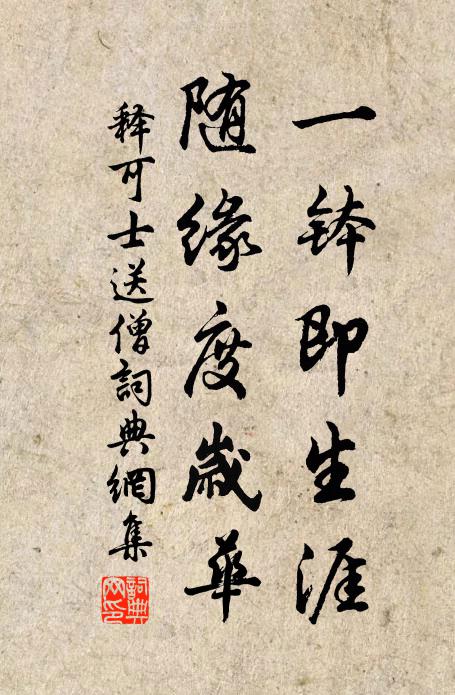 一钵即生涯
随缘度歲華
释可士送僧詞典網集
詞典网印